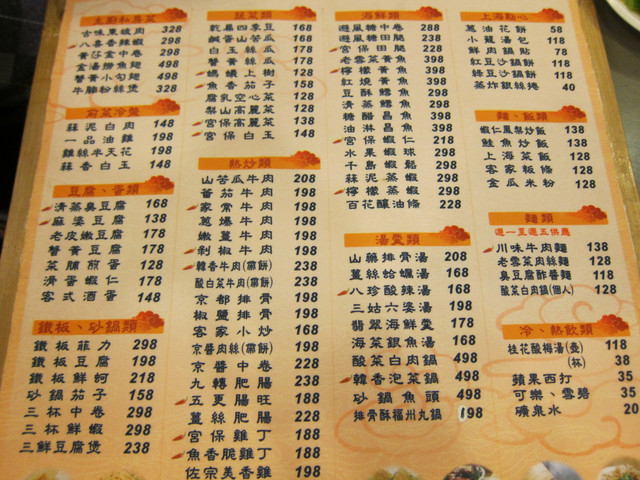 主廚私房菜
古味果琥肉 328
八喜香辣蝦 298
黃莎金中卷 298
金湯撈魚麵 298
蟹黃小勾麵 298
牛腩粉絲煲 328
前菜冷盤
蒜泥白肉 148
一品油雞 148
雞絲半天花 148
蒜香白玉 148
豆腐、蛋類
清蒸臭豆腐 168
麻婆豆腐 138
老皮嫩豆腐 178
蟹黃豆腐 178
菜脯煎蛋 128
滑蛋蝦仁 178
客式酒蛋 148
鐵板、砂鍋類
鐵板菲力 298
鐵板豆腐 198
鐵板鮮蚵 218
砂鍋茄子 158
三杯中卷 298
三杯鮮蝦 298
三鮮豆腐煲 238
蔬菜類
乾扁四季豆 168
鹹蛋山苦瓜 168
白玉絲瓜 168
蟹黃絲瓜 168
螞蟻上樹 128
魚香茄子 158
腐乳空心菜 138
梨山高麗菜 138
宮保高麗菜 138
宮保白玉 148
熱炒類
山苦瓜牛肉 208
蕃茄牛肉 198
家常牛肉 198
蔥爆牛肉 198
嫩薑牛肉 198
剁椒牛肉 198
韓香牛肉(帶餅) 238
酸白菜牛肉(帶餅) 238
京都排骨 198
椒鹽排骨 198
客家小炒 168
京醬肉絲(帶餅) 198
京醬中卷 228
九轉肥腸 238
五更腸旺 188
薑絲肥腸 238
宮保雞丁 188
魚香脆雞丁 188
佐宗美香雞 198
海鮮類
避風糖中卷 288
避風糖田腿 228
宮保田腿 238
老雪菜黃魚 398
檸檬黃魚 398
紅燒黃魚 398
豆酥鱈魚 298
清蒸鱈魚 298
糖醋昌魚 298
油淋昌魚 298
宮保蝦仁 218
水果蝦球 298
千島蝦鬆 298
蒜泥蒸蝦 298
檸檬蒸蝦 298
百花釀油條 228
湯羹類
山藥排骨湯 208
薑絲蛤蠣湯 168
八珍酸辣湯 168
三姑六婆湯 198
翡翠海鮮羹 178
海菜銀魚湯 168
酸菜白肉鍋 498
韓香泡菜鍋 498
砂鍋魚頭 498
排骨酥福州丸鍋 498
上海點心
蔥油花餅 58
小籠湯包 118
鮮肉鍋貼 78
紅豆沙鍋餅 118
綠豆沙鍋餅 118
蒸炸銀絲捲 40
麵、飯類
蝦仁鳳梨炒飯 138
鮭魚炒飯 138
上海菜飯 128
客家粄條 128
金瓜米粉 128
麵類
週一至週五供應
川味牛肉麵 138
老雪菜肉絲麵 118
臭豆腐酢醬麵 118
酸菜白肉鍋(個人) 128
冷、熱飲類
桂花酸梅湯(壺) 118
(杯) 38
蘋果西打 38
可樂、雪碧 38
礦泉水 20